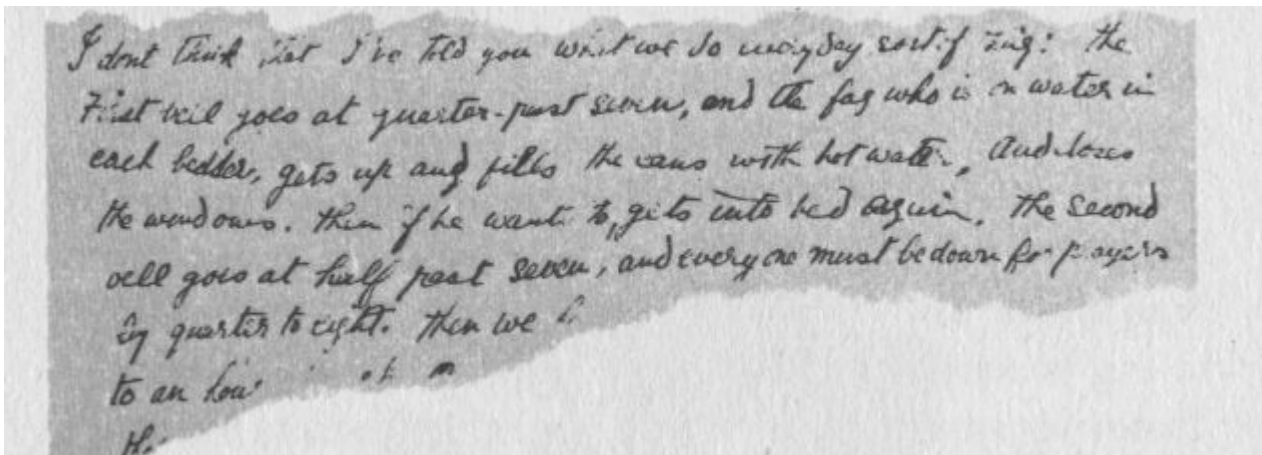 I dont think that I've told you what we do everyday sort of thing: the
First bell goes at quarter-past seven, and the fag who is on water in
each bedder, gets up and fills the cans with hot water, and closes
the windows. Then if he wants to, gets into bed again. The second
bell goes at half past seven, and everyone must be down for prayers
by quarter to eight. Then we
to an hour